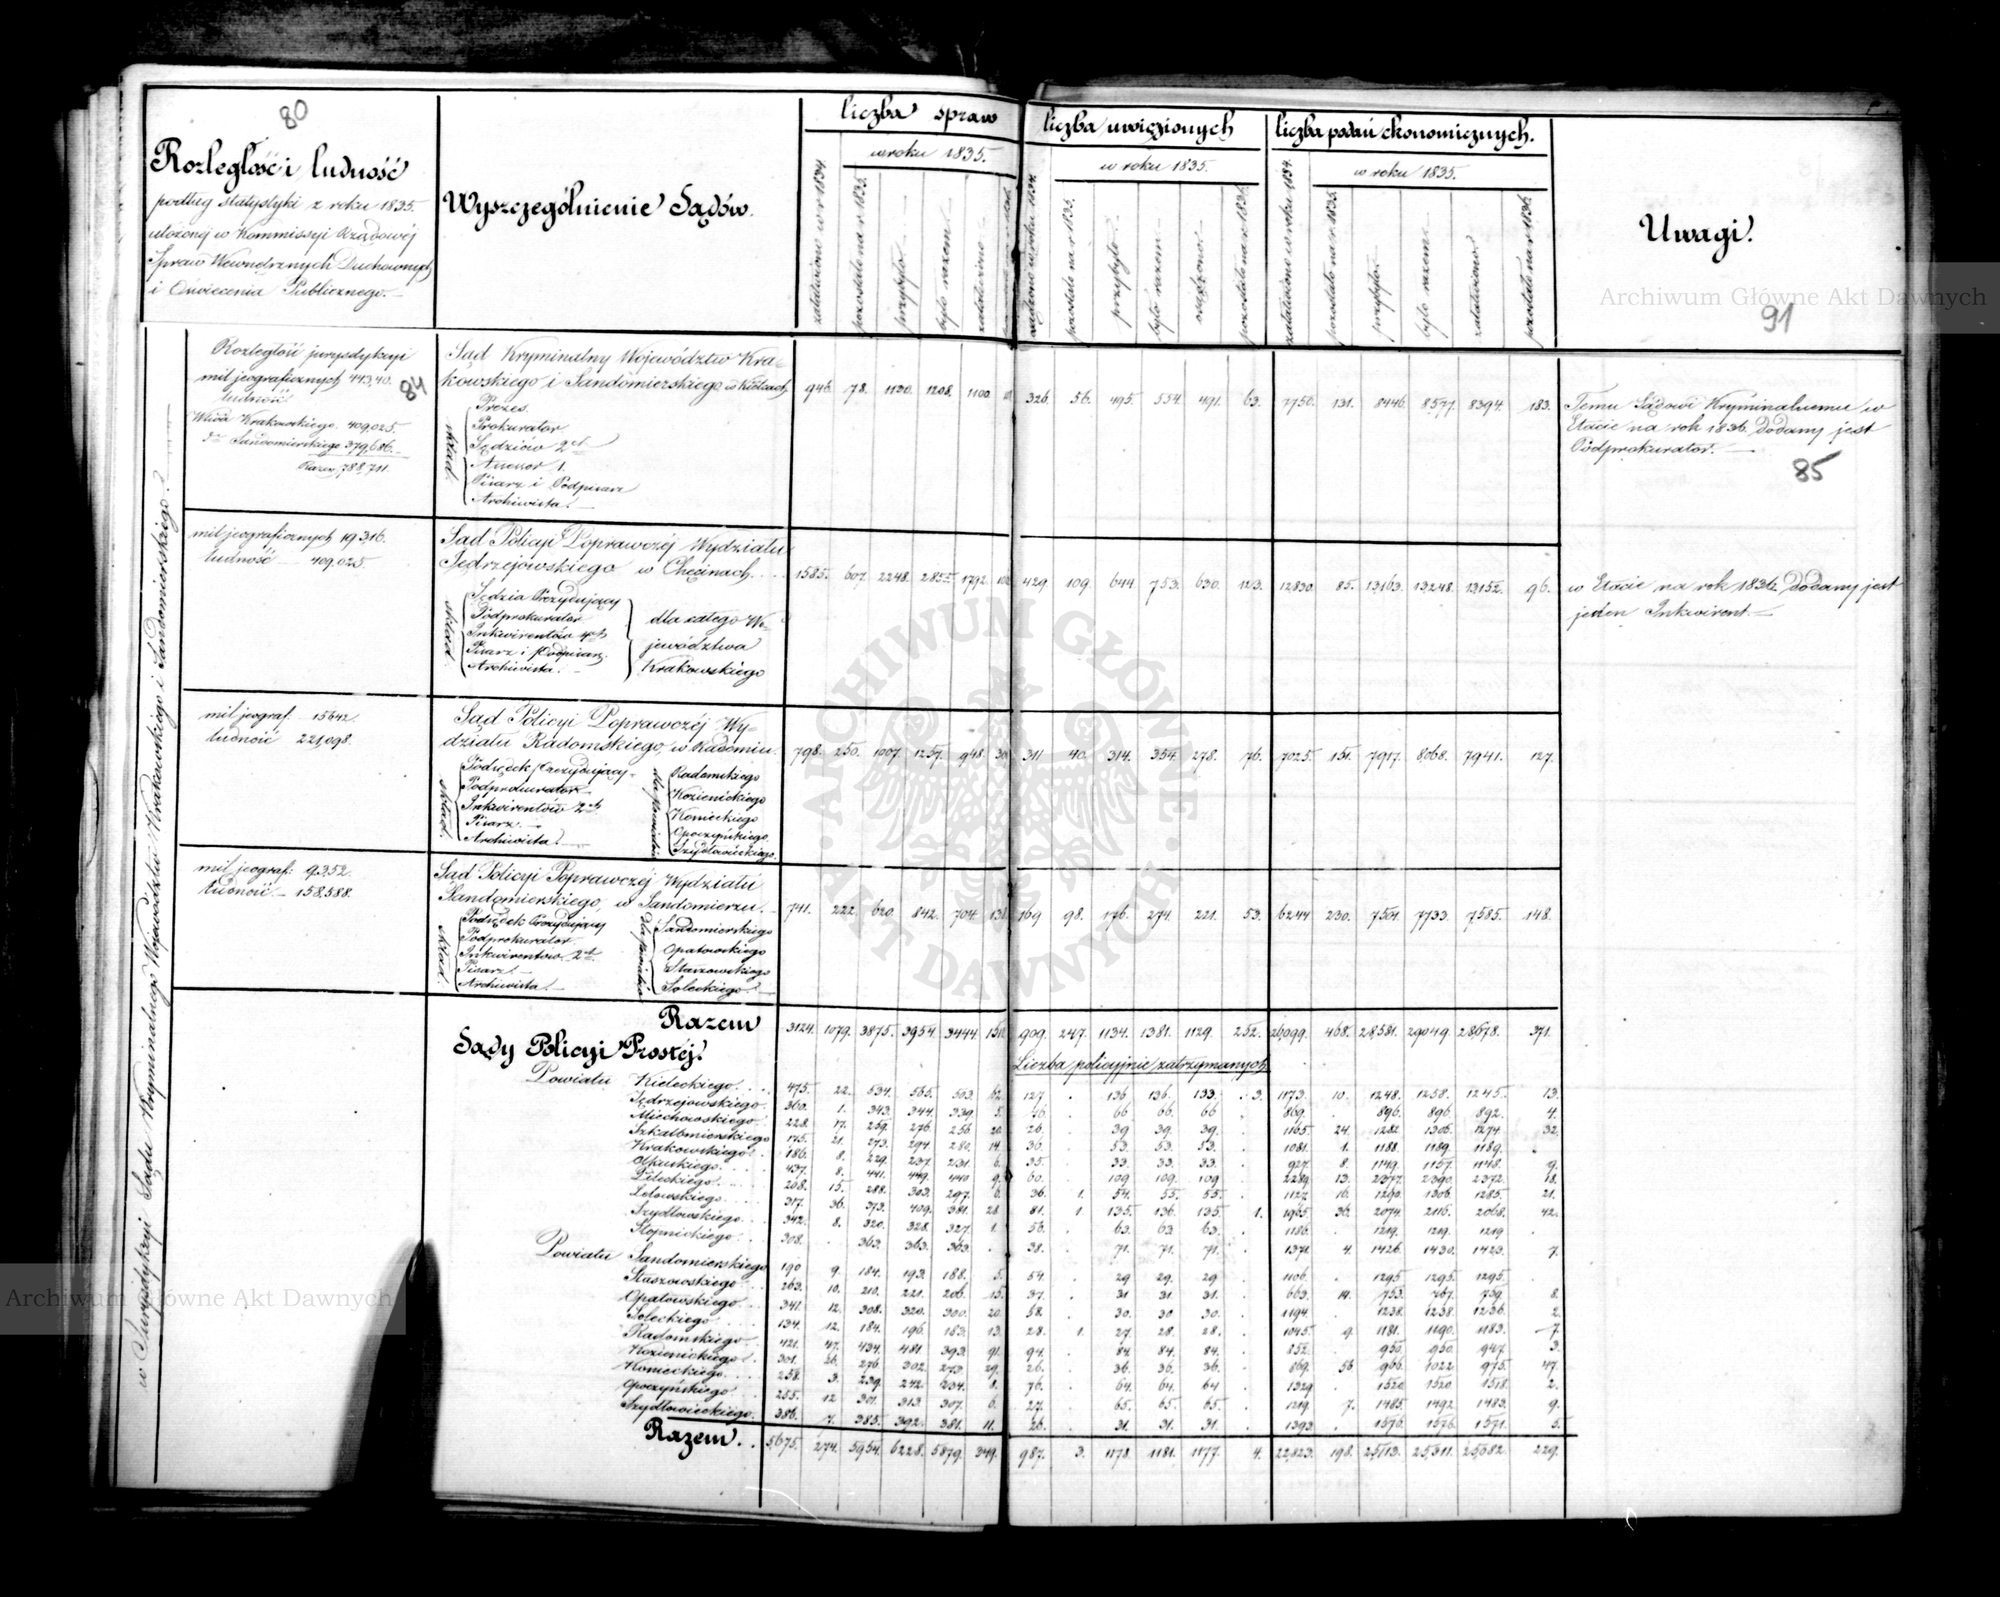 80
Rozległość i ludność
podług statystyki z roku 1835.
ułożonéj w Kommissyi Rządowéj
Spraw Wewnętrznych Duchownych
i Oświecenia Publicznego.
Wyszczególnienie Sądów.
liczba spraw
w roku 1835.
załatwiono w r 1834.
pozostało na r 1835.
przybyło
było razem
załatwiono
liczba uwięzionych
w roku 1835.
pozostało na r 1835.
przybyło
było razem
osądzono
pozostało na r 1836.
liczba podań ekonomicznych.
w roku 1835.
załatwiono w roku 1834.
pozostało na r 1835.
przybyło
było razem
załatwiono
pozostało na r 1836.
Uwagi.
91
w Jurysdykcyi Sądu Kryminalnego Województw Krakowskiego i Sandomierskiego
Rozległość jurysdykcyi
mil jeograficznych 443,40.
ludność
Wdztwa Krakowskiego 409,025.
do Sandomierskiego 379,686.
Razem 788,711.
84
Sąd Kryminalny Województw Kra-
kowskiego i Sandomierskiego w Kielcach
skład
Prezes.
Prokurator
Sędziów 2ch
Assessor 1.
Pisarz i Podpisarz
Archiwista.
946. 78. 1130. 1208. 1100.
326. 56. 495. 554. 491. 63.
7750. 131. 8446. 8577. 8394. 183.
Temu Sądowi Kryminalnemu w
Etacie na rok 1836 dodany jest
Podprokurator.
85
mil jeograficznych 19316.
ludność 409,025.
Sąd Policyi Poprawczéj Wydziału
Jędrzejowskiego w Chęcinach
skład
Sędzia Prezydujący
Podprokurator
Inkwirentów 4ch
Pisarz i Podpisarz
Archiwista.
dla całego Wo-
jewództwa
Krakowskiego
1585. 607. 2248. 2855. 1792.
429. 109. 644. 753. 630. 123.
12830. 85. 13,163. 13,248. 13,152. 96.
w Etacie na rok 1836 dodany jest
jeden Inkwirent.
mil jeograf. 15642.
ludność 221,098.
Sąd Policyi Poprawczéj Wy-
działu Radomskiego w Radomiu.
skład
Podsędek Prezydujący
Podprokurator
Inkwirentów 2ch
Pisarz
Archiwista.
dla Powiatów
Radomskiego
Kozienickiego
Koneckiego
Opoczyńskiego
Szydłowieckiego
798. 250. 1007. 1257. 948.
311 40. 314. 354. 278. 76.
7025. 151. 7917. 8068. 7941. 127.
mil jeograf: 9352.
ludność 158,588.
Sąd Policyi Poprawczéj Wydziału
Sandomierskiego w Sandomierzu.
skład
Podsędek Prezydujący
Podprokurator
Inkwirentów 2ch
Pisarz
Archiwista.
dla Powiatów
Sandomierskiego
Opatowskiego
Staszowskiego
Soleckiego
741. 222. 620. 842. 704.
169 98. 176. 274. 221. 53.
6244 230. 7501. 7733. 7585. 148.
Razem
3124. 1079. 3875. 3954. 3444.
909. 247. 1134. 1381. 1129. 252.
26,099. 468. 28,581. 29049. 28,678. 371.
Sądy Policyi Prostéj.
Liczba policyjnie zatrzymanych
Powiatu Kieleckiego. 475. 22. 534. 565. 503. 62. 127. 136 136. 133. 3. 1173. 10. 1248. 1258. 1245. 13.
Jędrzejowskiego. 360. 1. 343. 344. 339. 5. 46. 66 66. 66 869. 896. 896 892. 4.
Miechowskiego. 228. 17. 259. 276. 256 20. 26. 39. 39. 39. 1165. 24. 1282. 1306. 1274. 32.
Szkalbmierskiego 175. 21. 273. 294 280. 14. 30. 53. 53. 53. 1081. 1. 1188. 1189. 1189.
Krakowskiego. 186. 8. 229. 237. 231. 6. 35. 33. 33. 33. 927. 8. 1149. 1157. 1148. 9.
Olkuskiego. 437. 8. 441. 449. 440 9. 60. 109 109. 109 2289. 13. 2377. 2390. 2372. 18.
Pileckiego. 208. 15. 288. 303. 297. 6. 36. 1. 54. 55. 55. 1127. 16. 1290. 1306. 1285. 21.
Lelowskiego. 317. 36. 373. 409. 381. 28 81. 1. 135. 136. 135 1. 1965 36 2074 2116. 2068. 42.
Szydłowskiego. 342. 8. 320. 328. 327. 1. 56. 63. 63 63. 1186. 1219. 1219. 1219
Stopnickiego. 308. 363. 363. 363. 38. 71. 71. 71. 1371. 4. 1426. 1430. 1423. 7.
Powiatu Sandomierskiego 190 9. 184. 193. 188. 5. 54. 29 29. 29 1106. 1295 1295. 1295.
Staszowskiego. 263. 10. 210. 221. 206. 15. 37. 31 31. 31. 663. 14. 753. 767. 759. 8.
Opatowskiego. 341. 12. 308. 320. 300. 20. 58. 30. 30. 30. 1194. 1238. 1238. 1236. 2.
Soleckiego. 134. 12. 184. 196. 183. 13. 28. 1. 27. 28. 28. 1045. 9. 1181. 1190. 1183. 7.
Radomskiego. 421. 47. 434. 481. 393. 91. 94. 84. 84. 84. 852. 950. 950. 947. 3.
Kozienickiego. 301. 26. 276. 302. 273. 29. 26. 36. 36. 36. 869. 56 966. 1022. 975. 47.
Koneckiego. 258. 3. 239. 242. 234. 8. 76. 64. 64. 64 1329. 1520. 1520. 1518. 2.
Opoczyńskiego. 255. 12 301. 313. 307. 6. 27. 65. 65. 65. 1219. 7. 1485. 1492. 1483. 9.
Szydłowieckiego. 386. 7. 385. 392. 381. 11. 26. 31. 31. 31. 1393. 1576. 1576. 1571. 5.
Razem. 5,675. 274. 5954. 6228. 5879. 349. 987. 3. 1178. 1181. 1177. 4. 22,823. 198. 25,113. 25,311. 25,082 229.
Archiwum Główne Akt Dawnych
Archiwum Główne Akt Dawnych
ARCHIWUM GŁÓWNE AKT DAWNYCH